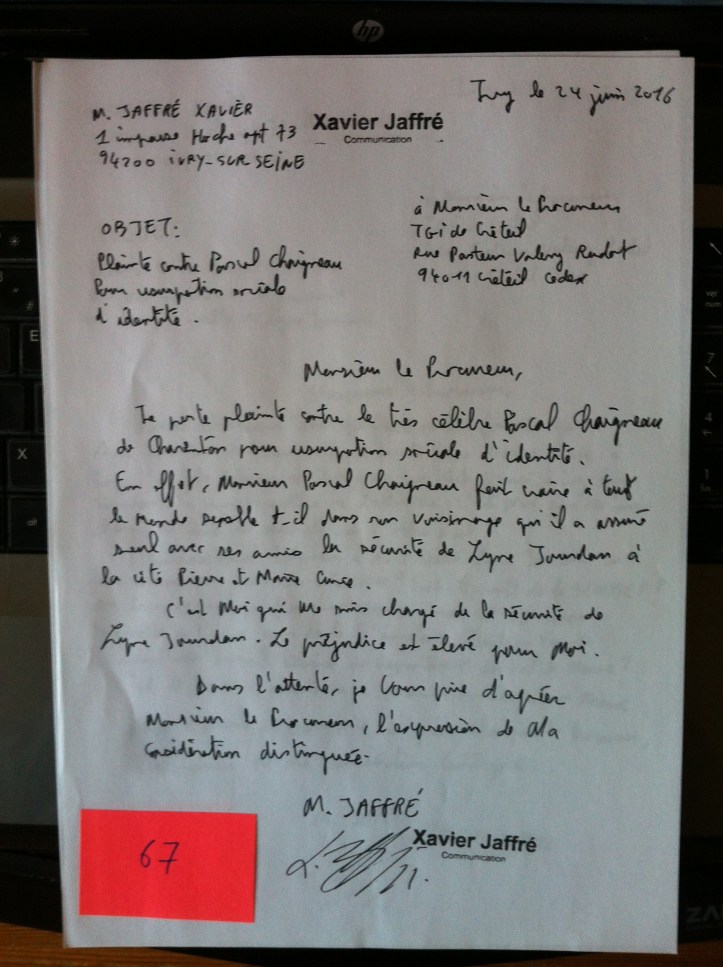 hp
Ivry le 24 juin 2016
M. JAFFRÉ XAVIER
1 impasse Hoche apt 73
94200 IVRY-SUR SEINE
Xavier Jaffré
Communication
à Monsieur le Procureur
TGI de Créteil
Rue Pasteur Valery Radot
94011 Créteil cedex
OBJET:
Plainte contre Pascal Chaigneau
Pour usurpation sociale
d'identité.
Monsieur le Procureur,
Je porte plainte contre le très célèbre Pascal Chaigneau
de Charenton pour usurpation sociale d'identité.
En effet, Monsieur Pascal Chaigneau fait croire à tout
le monde semble t-il dans son voisinage qu'il a assuré
seul avec ses amis la sécurité de Lyne Jourdan à
la cité Pierre et Marie Curie.
C'est Moi qui me suis chargé de la sécurité de
Lyne Jourdan. Le préjudice est élevé pour Moi.
Dans l'attente, je vous prie d'agréer
Monsieur le Procureur, l'expression de Ma
considération distinguée.
M. JAFFRÉ
Xavier Jaffré
Communication
67